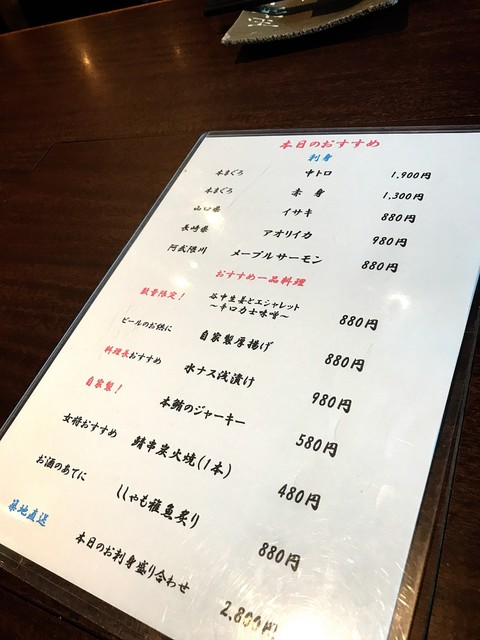 本日のおすすめ
刺身
本まぐろ 中トロ 1,900円
本まぐろ 赤身 1,300円
山口県 イサキ 880円
長崎県 アオリイカ 980円
阿武隈川 メープルサーモン 880円
おすすめ一品料理
数量限定! 谷中生姜とエシャレット
~辛口力士味噌~ 880円
ビールのお供に 自家製厚揚げ 880円
料理長おすすめ 水ナス浅漬け 980円
自家製! 本鮪のジャーキー 580円
女将おすすめ 鯖串炭火焼(1本) 480円
お酒のあてに ししゃも稚魚炙り 880円
築地直送 本日のお刺身盛り合わせ 2,800円